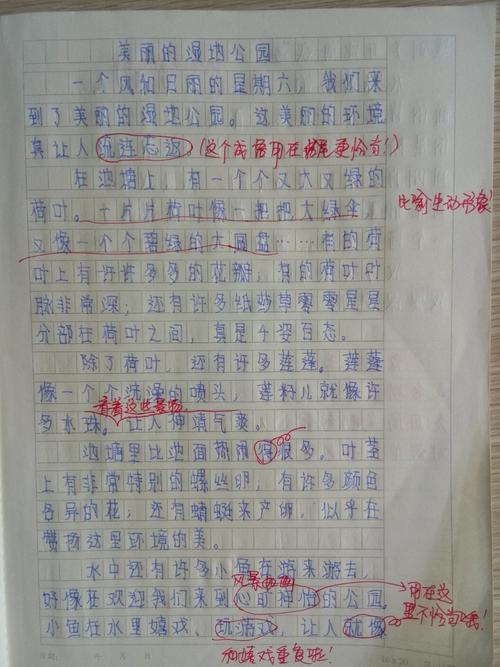 美丽的湿地公园
一个风和日雨的星期六，我们来
到了美丽的湿地公园。这美丽的环境
真让人流连忘返。(这个成语用在结尾更恰当!)
在池塘上，有一个个又大又绿的
荷叶。一片片荷叶像一把把大绿伞， 比喻生动形象!
又像一个个碧绿的大圆盘……有的荷
叶上有许许多多的花瓣，有的荷叶叶
脉非常深；还有许多纸莎草零零星星
分部在荷叶之间，真是千姿百态。
除了荷叶，还有许多莲蓬。莲蓬
像一个个洗澡的喷头，莲籽儿就像许
看着这些景物，
多水珠。让人神清气爽。
池塘里比地面热闹得很多。叶茎
上有非常特别的螺丝卵；有许多颜色
各异的花；还有蜻蜓来产卵，似乎在
赞扬这里环境的美。
水中还有许多小鱼在游来游去，
风景幽幽
好像在欢迎我们来到心旷神怡的公园。 用在这里不恰当哦!
小鱼在水里嬉戏、玩游戏，让人就像
和嬉戏重复啦!